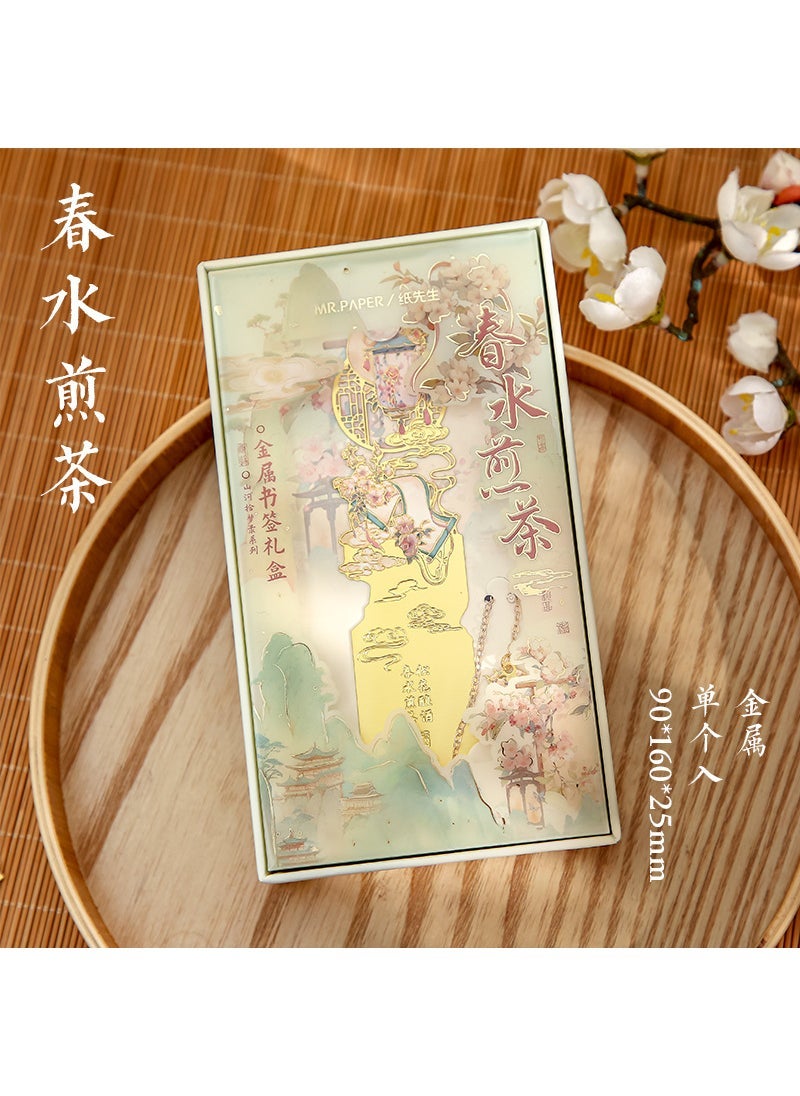 春水煎茶
MR.PAPER/纸先生
春水煎茶
金属书签礼盒
山河拾梦票系列
松花酿酒
春水煎
金属
单个入
90*160*25mm